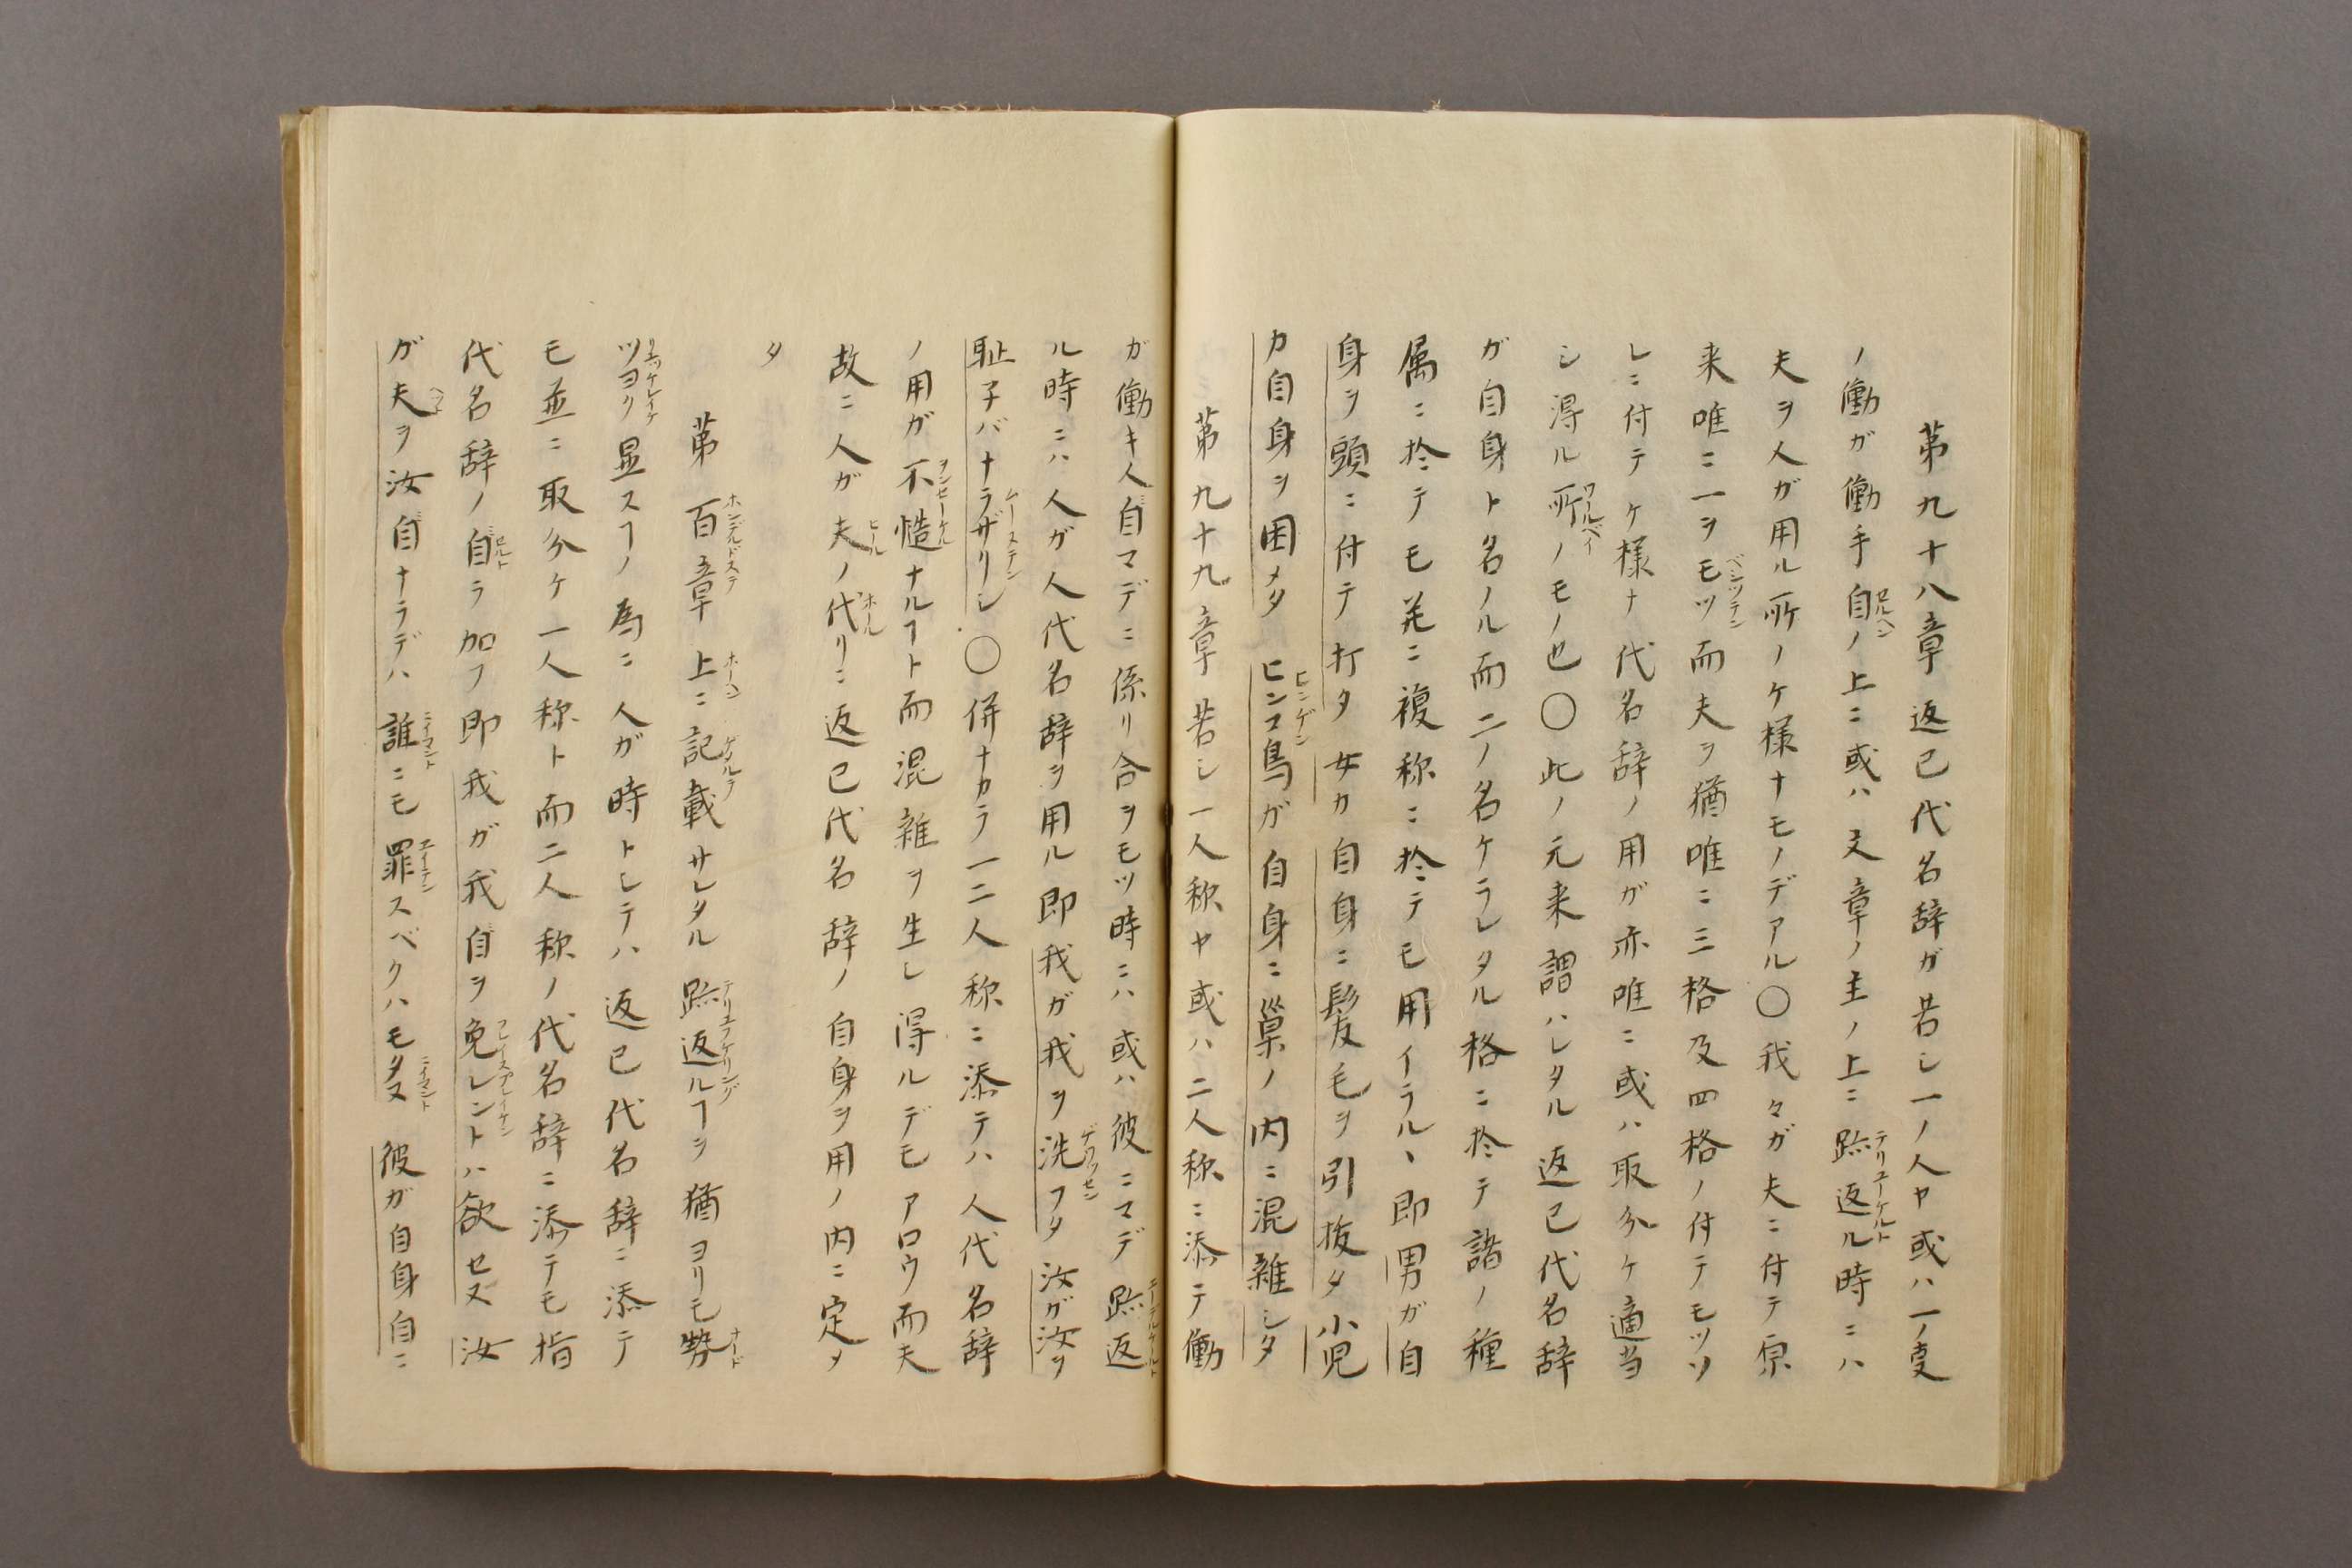 第九十八章 返己代名辞ガ若シ一ノ人ヤ或ハ一ノ叓
ノ働ガ働手自ノ上ニ或ハ文章ノ主ノ上ニ跡返ル時ニハ
夫ヲ人ガ用ル所ノケ様ナモノデアル〇我々ガ夫ニ付テ原
来唯ニ一ヲモツ而夫ヲ猶唯ニ三格及四格ノ付テモツソ
レニ付テケ様ナ代名辞ノ用ガ亦唯ニ或ハ取分ケ適当
シ得ル所ノモノ也〇此ノ元来謂ハレタル返己代名辞
ガ自身ト名ノル而二ノ名ケラレタル格ニ於テ諸ノ種
属ニ於テモ羌ニ複称ニ於テモ用イラル、即男ガ自
身ヲ頭ニ付テ打タ 女カ自身ニ髪毛ヲ引抜タ 小児
カ自身ヲ困メタ ヒンコ鳥ガ自身ニ巣ノ内ニ混雑シタ
第九十九章 若シ一人称ヤ或ハ二人称ニ添テ働
ガ働キ人自マデニ係リ合ヲモツ時ニハ或ハ彼ニマデ跡返
ル時ニハ人ガ人代名辞ヲ用ル即我ガ我ヲ洗フタ 汝ガ汝ヲ
耻子バナラザリシ〇併ナカラ一二人称ニ添テハ人代名辞
ノ用ガ不慥ナルヿト而混雑ヲ生シ得ルデモアロウ而夫
故ニ人ガ夫ノ代リニ返己代名辞ノ自身ヲ用ノ内ニ定メ
タ
第百章 上ニ記載サレタル跡返ルヿヲ猶ヨリモ勢
ツヨク显スヿノ為ニ人ガ時トレテハ返己代名辞ニ添テ
モ並ニ取分ケ一人称ト而二人称ノ代名辞ニ添テモ指
代名辞ノ自ラ加フ即我ガ我自ヲ免レントハ欲セス 汝
ガ夫ヲ汝自ナラデハ誰ニモ罪スベクハモタヌ 彼ガ自身自ニ